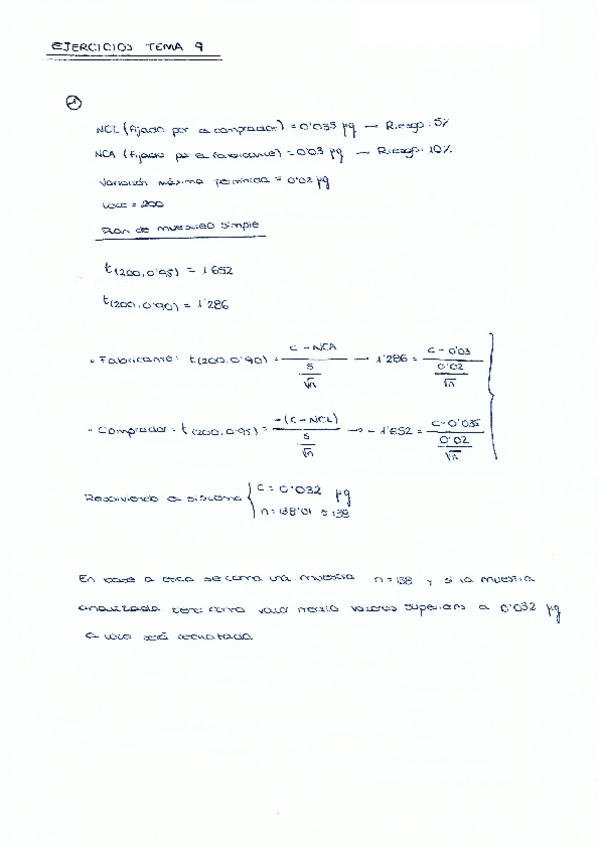 EJERCICIOS TEMA 9
1
NCL (fijado por el comprador) = 0'035 µg — Riesgo: 5%
NCA (fijado por el fabricante) = 0'03 µg — Riesgo: 10%
Variación máxima permitida = 0'02 µg
Lote = 200
Plan de muestreo simple
t(200,0'95) = 1'652
t(200,0'90) = 1'286
- Fabricante: t(200,0'90) = (c - NCA) / (s / √n) → 1'286 = (c - 0'03) / (0'02 / √n)
- Comprador: t(200,0'95) = -(c - NCL) / (s / √n) → -1'652 = (c - 0'035) / (0'02 / √n)
Resolviendo el sistema { c = 0'032 µg
n = 138'01 ≈ 138
En base a esto se toma una muestra n = 138 y si la muestra
analizada tiene como valor medio valores superiores a 0'032 µg
el lote será rechazado